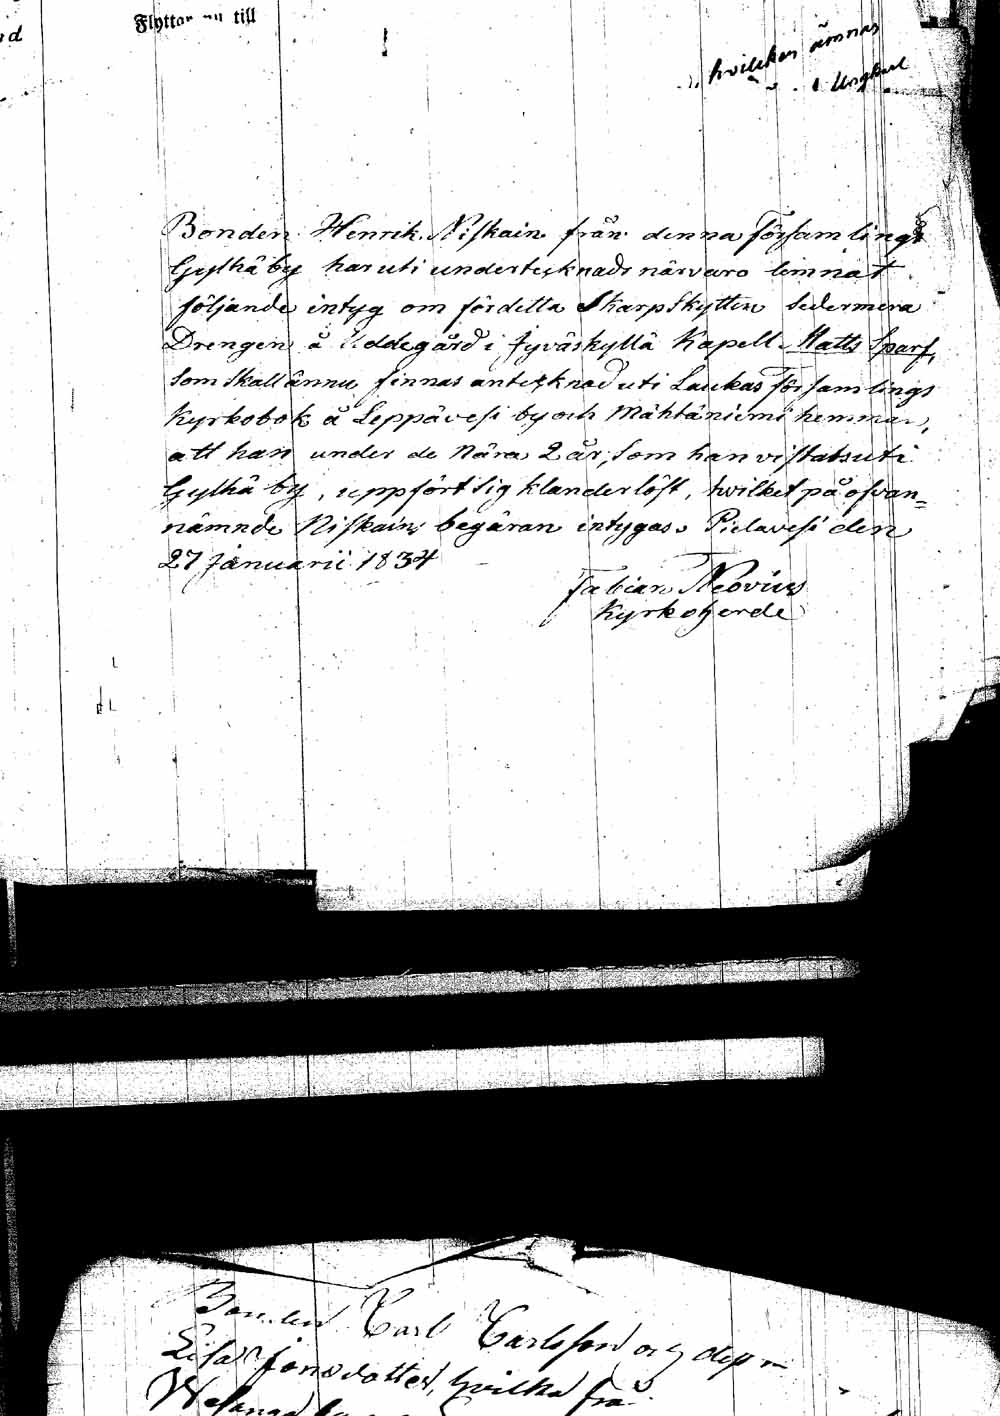 nd
Flyttar till
hvilken ämnas
Ungkarl
Bonden Henrik Niskain från denna Församlings
Gylhä by har uti undertecknads närvaro lemnat
följande intyg om fördetta Skarpskytten sedermera
Drengen å Uddegård i Jyväskylä Kapell Matts Sparf,
som skall ännu finnas antecknad uti Laukas Församlings
Kyrkobok å Leppävesi by och Mähtäniemi hemman,
att han under de nära 2 år, som han vistats uti
Gylhä by, uppfört sig klanderlöst, hwilket på ofvan=
nämnde Niskains begäran intygas. Pielavesi den
27 Januarii 1834
Fabian Neovius
Kyrkoherde
Bonden Carl Carlsson och dess
Lisa Jonsdotter, hvilka från